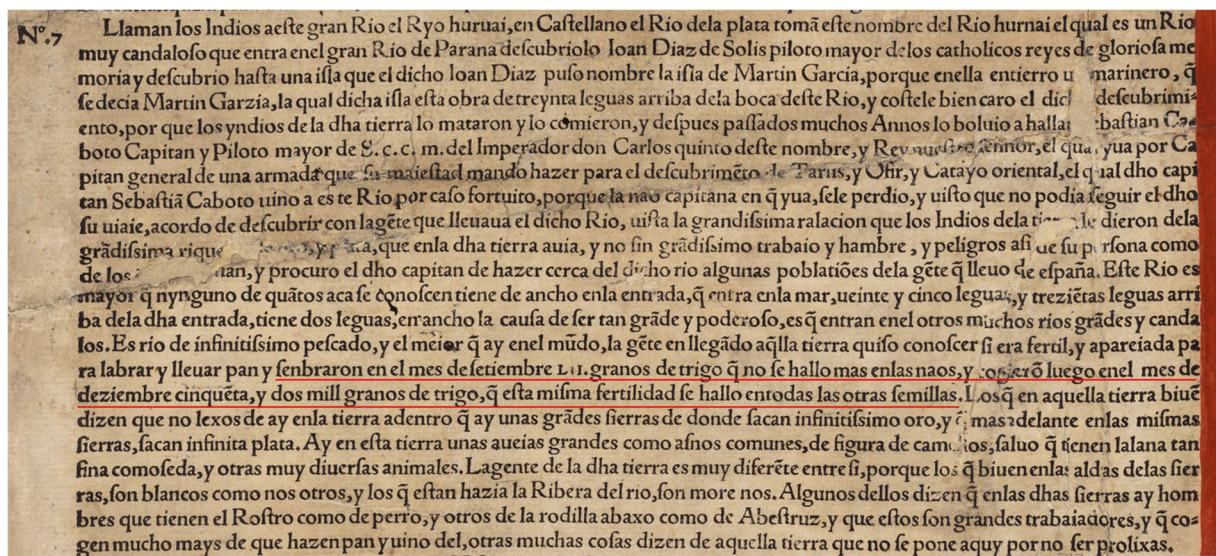 Nº.7 Llaman los Indios aeſte gran Rio el Ryo huruai,en Caſtellano el Rio dela plata tomã eſte nombre del Rio hurnai el qual es un Rio
muy candaloſo que entra enel gran Rio de Parana deſcubriolo Ioan Diaz de Solis piloto mayor delos catholicos reyes de glorioſa me
moria y deſcubrio haſta una iſla que el dicho Ioan Diaz puſo nombre la iſla de Martin Garcia,porque enella entierro u marinero, q̃
ſe decia Martin Garzia,la qual dicha iſla eſta obra de treynta leguas arriba dela boca deſte Rio,y coſtele bien caro el dic deſcubrimi⸗
ento,por que los yndios de la dha tierra lo mataron y lo comieron,y deſpues paſſados muchos Annos lo boluio a halla baſtian Ca⸗
boto Capitan y Piloto mayor de S.c.c. m.del Imperador don Carlos quinto deſte nombre,y Rey nueſtro ſennor,el qua yua por Ca
pitan general de una armada que ſu maieſtad mando hazer para el deſcubrimẽto de Tarus,y Ofir,y Catayo oriental,el qual dho capi
tan Sebaſtiã Caboto uino a es te Rio por caſo fortuito,porque la nao capitana en q̃ yua,ſele perdio,y uiſto que no podia ſeguir el dho
ſu uiaie,acordo de deſcubrir con lagẽte que lleuaua el dicho Rio, uiſta la grandiſſima ralacion que los Indios dela le dieron dela
grãdiſſima rique y plata,que enla dha tierra auia, y no ſin grãdiſſimo trabaio y hambre , y peligros aſi de ſu perſona como
de los uan,y procuro el dho capitan de hazer cerca del dicho rio algunas poblatiões dela gẽte q̃ lleuo de eſpaña.Eſte Rio es
mayor q̃ nynguno de quãtos aca ſe conoſcen tiene de ancho enla entrada,q̃ entra enla mar,ueinte y cinco leguas,y treziẽtas leguas arri
ba dela dha entrada,tiene dos leguas,en ancho la cauſa de ſer tan grãde y poderoſo,es q̃ entran enel otros muchos rios grãdes y canda
los.Es rio de infinitiſſimo peſcado,y el meior q̃ ay enel mũdo,la gẽte en llegãdo aq̃lla tierra quiſo conoſcer ſi era fertil,y apareiada pa
ra labrar y lleuar pan y ſenbraron en el mes de ſetiembre LII.granos de trigo q̃ no ſe hallo mas enlas naos,y cogierõ luego enel mes de
deziembre cinquẽta,y dos mill granos de trigo,q̃ eſta miſma fertilidad ſe hallo entodas las otras ſemillas.Los q̃ en aquella tierra biuẽ
dizen que no lexos de ay enla tierra adentro q̃ ay unas grãdes ſierras de donde ſacan infinitiſſimo oro,y q̃ mas adelante enlas miſmas
ſierras,ſacan infinita plata. Ay en eſta tierra unas aueias grandes como aſnos comunes,de figura de camelos,ſaluo q̃ tienen lalana tan
fina comoſeda,y otras muy diuerſas animales.Lagente de la dha tierra es muy diferẽte entre ſi,porque los q̃ biuen enlas aldas delas ſier
ras,ſon blancos como nos otros,y los q̃ eſtan hazia la Ribera del rio,ſon more nos.Algunos dellos dizen q̃ enlas dhas ſierras ay hom
bres que tienen el Roſtro como de perro,y otros de la rodilla abaxo como de Abeſtruz,y que eſtos ſon grandes trabaiadores,y q̃ co⸗
gen mucho mays de que hazen pan y uino del,otras muchas coſas dizen de aquella tierra que no ſe pone aquy por no ſer prolixas.